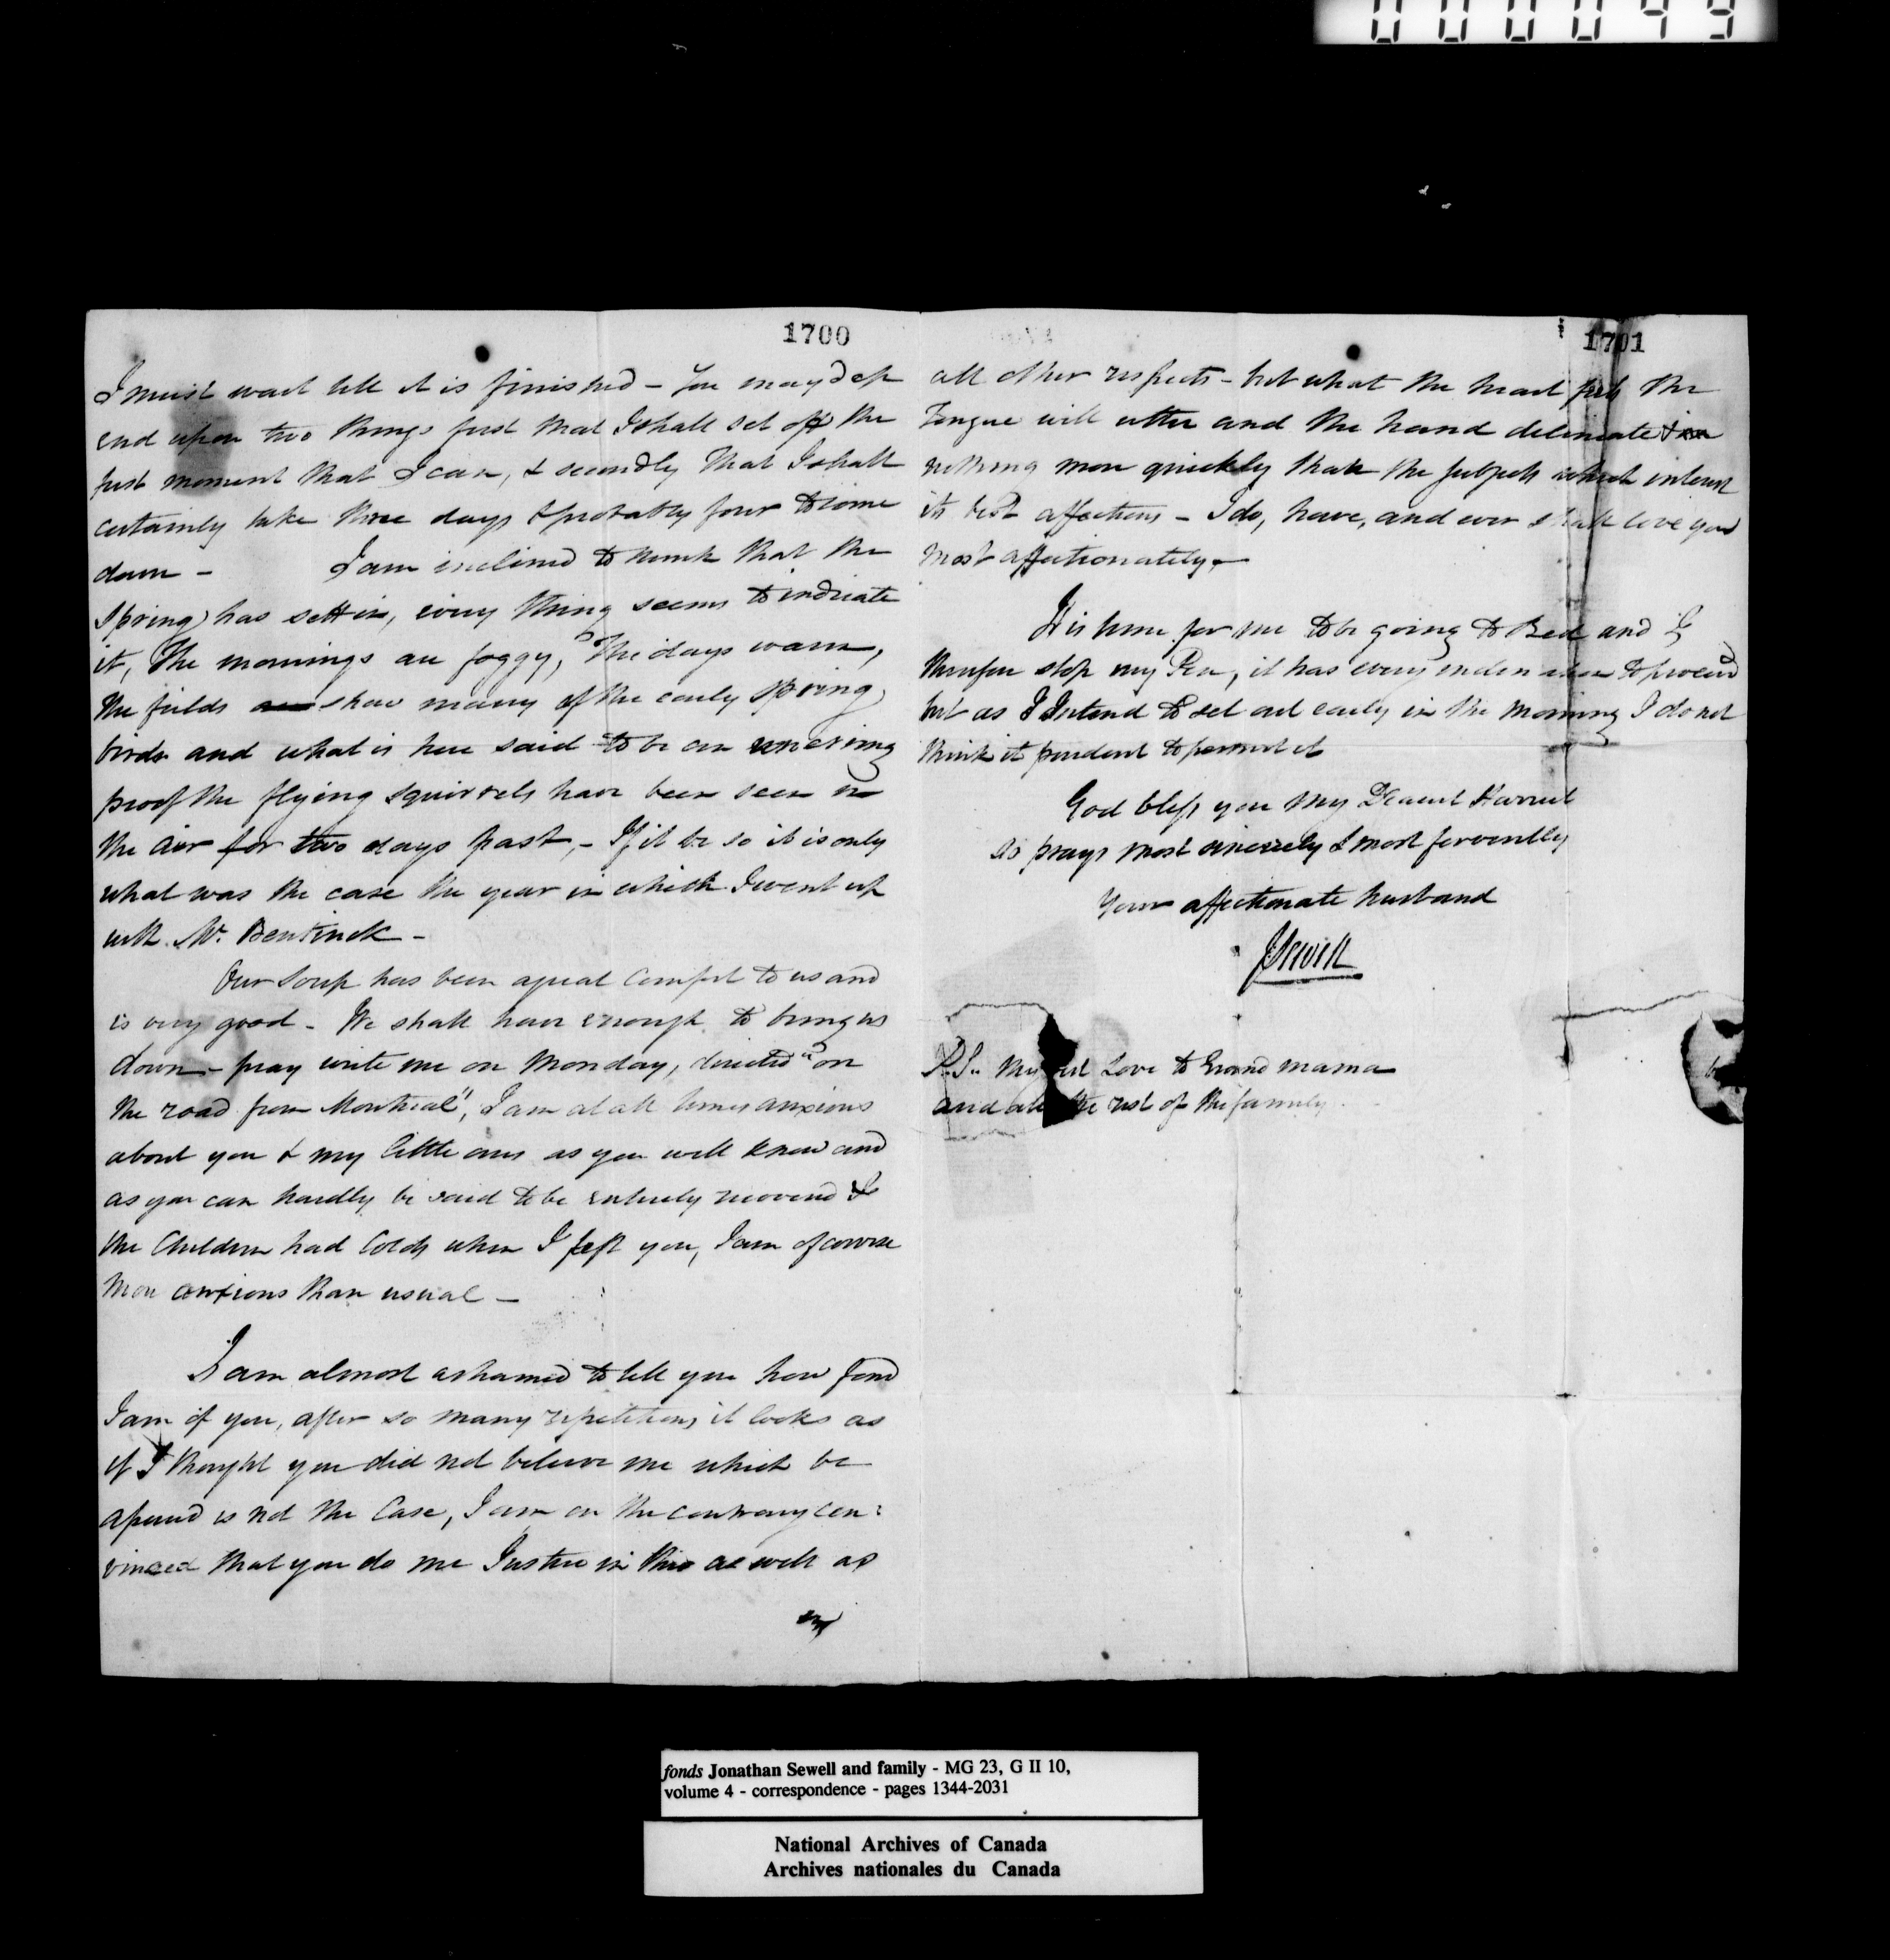 000099
1700
I must wait till it is finished – You may dep
end upon two things first that I shall set off the
first moment that I can, & secondly that I shall
certainly take three days & probably four to come
down – I am inclined to think that the
Spring has sett in, every thing seems to indicate
it, The mornings are foggy, The days warm,
the fields show many of the early spring
birds and what is here said to be an unerring
proof the flying squirrels have been seen in
the air for two days past, – If it be so it is only
what was the case the year in which I went up
with Mr. Bentinck –
Our Soup has been a great comfort to us and
is very good – We shall have enough to bring us
down – pray write me on Monday, directed "on
the road from Montreal", I am at all times anxious
about you & my little ones as you well know and
as you can hardly be said to be entirely recovered &
the Children had Colds when I left you, I am of course
more anxious than usual –
I am almost ashamed to tell you how fond
I am of you, after so many repetitions it looks as
if I thought you did not believe me which be
assured is not the Case, I am on the contrary con:
vinced that you do me Justice in this as well as
1701
all other respects – but what the heart feels the
Tongue will utter and the hand delineate &
nothing more quickly than the subjects which interest
its best affections – I do, have, and ever shall love you
most affectionately –
It is time for me to be going to Bed and I
therefore stop my Pen, it has every to proceed
but as I Intend to set out early in the morning I do not
think it prudent to permit it
God bless you my Dearest Harriet
so prays most sincerely & most fervently
Your affectionate husband
J Sewell
P.S. My Love to Grand mama
and all the rest of the family
fonds Jonathan Sewell and family - MG 23, G II 10,
volume 4 - correspondence - pages 1344-2031
National Archives of Canada
Archives nationales du Canada